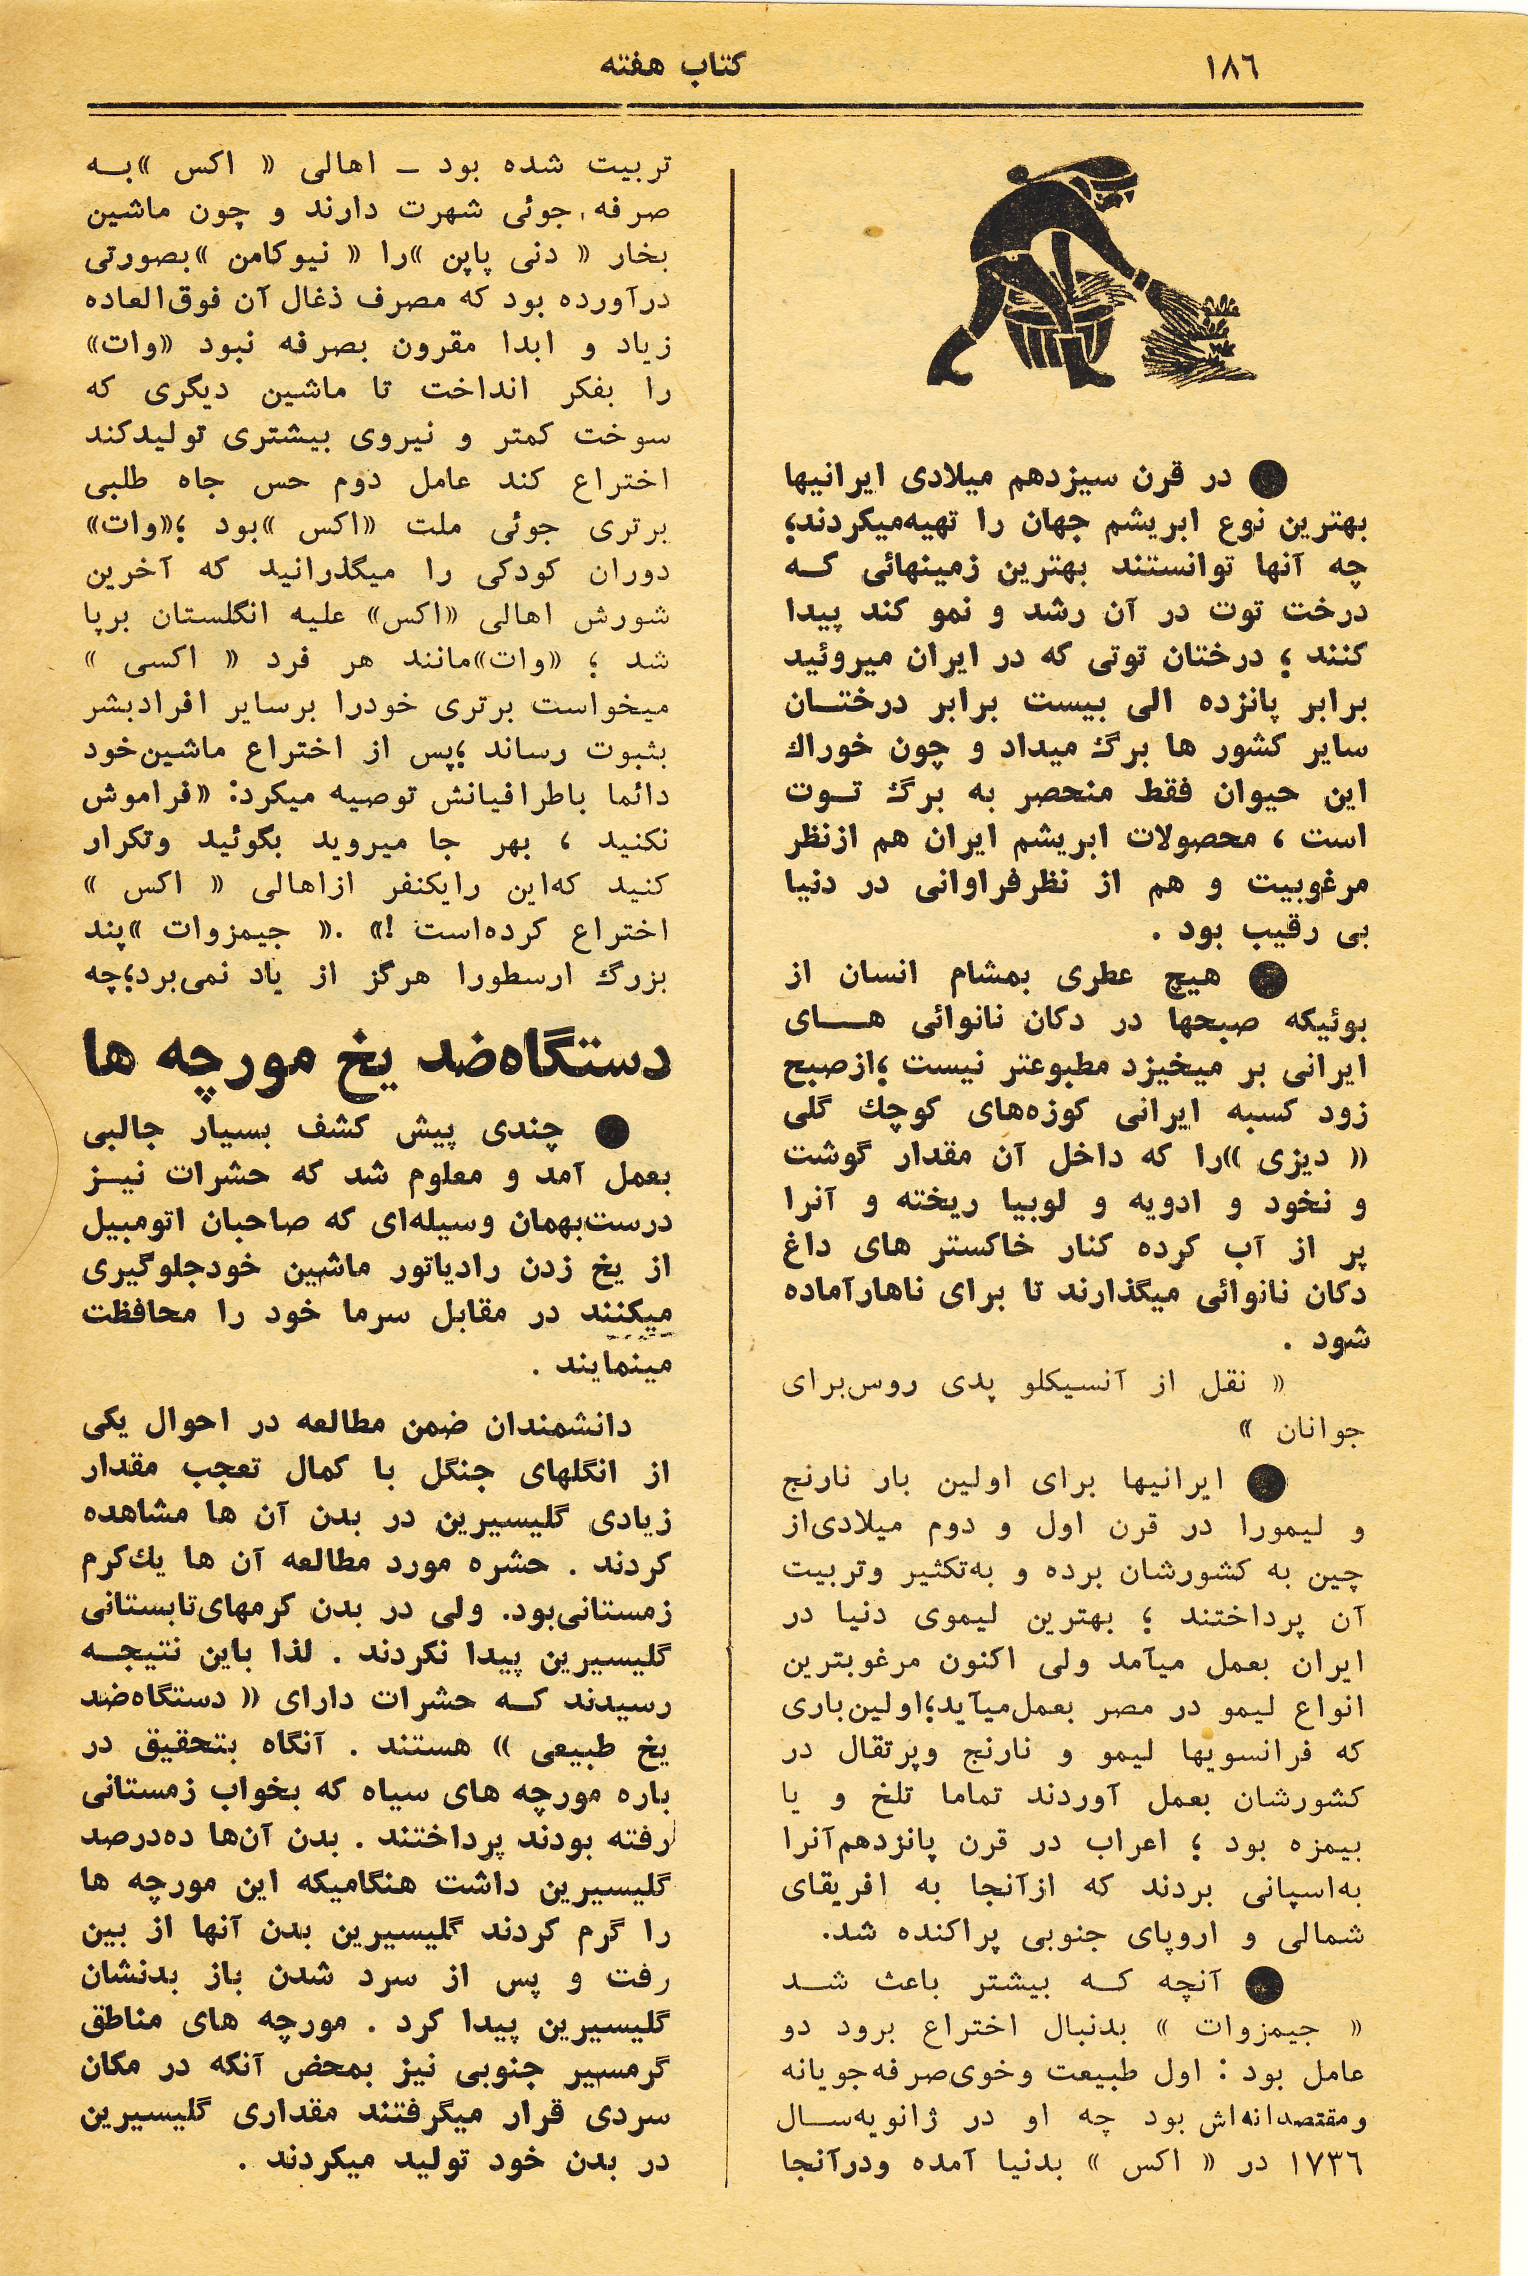 ۱۸٦
کتاب هفته
● در قرن سیزدهم میلادی ایرانیها
بهترین نوع ابریشم جهان را تهیه‌میکردند؛
چه آنها توانستند بهترین زمینهائی کـه
درخت توت در آن رشد و نمو کند پیدا
کنند ؛ درختان توتی که در ایران میروئید
برابر پانزده الی بیست برابر درختـان
سایر کشور ها برگ میداد و چون خوراك
این حیوان فقط منحصر به برگ تـوت
است ، محصولات ابریشم ایران هم ازنظر
مرغوبیت و هم از نظرفراوانی در دنیا
بی رقیب بود .
● هیچ عطری بمشام انسان از
بوئیکه صبحها در دکان نانوائی هـای
ایرانی بر میخیزد مطبوعتر نیست ؛ازصبح
زود کسبه ایرانی کوزه‌های کوچك گلی
« دیزی »را که داخل آن مقدار گوشت
و نخود و ادویه و لوبیا ریخته و آنرا
پر از آب کرده کنار خاکستر های داغ
دکان نانوائی میگذارند تا برای ناهارآماده
شود .
« نقل از آنسیکلو پدی روس‌برای
جوانان »
● ایرانیها برای اولین بار نارنج
و لیمورا در قرن اول و دوم میلادی‌از
چین به کشورشان برده و به‌تکثیر وتربیت
آن پرداختند ؛ بهترین لیموی دنیا در
ایران بعمل میآمد ولی اکنون مرغوبترین
انواع لیمو در مصر بعمل‌میآید؛اولین‌باری
که فرانسویها لیمو و نارنج وپرتقال در
کشورشان بعمل آوردند تماما تلخ و یا
بیمزه بود ؛ اعراب در قرن پانزدهم‌آنرا
به‌اسپانی بردند که ازآنجا به افریقای
شمالی و اروپای جنوبی پراکنده شد.
● آنچه کـه بیشتر باعث شـد
« جیمزوات » بدنبال اختراع برود دو
عامل بود : اول طبیعت وخوی‌صرفه‌جویانه
ومقتصدانه‌اش بود چه او در ژانویه‌سـال
۱۷۳٦ در « اکس » بدنیا آمده ودرآنجا
تربیت شده بود ـ اهالی « اکس »بـه
صرفه‌جوئی شهرت دارند و چون ماشین
بخار « دنی پاپن »را « نیوکامن »بصورتی
درآورده بود که مصرف ذغال آن فوق‌العاده
زیاد و ابدا مقرون بصرفه نبود «وات»
را بفکر انداخت تا ماشین دیگری که
سوخت کمتر و نیروی بیشتری تولیدکند
اختراع کند عامل دوم حس جاه طلبی
برتری جوئی ملت «اکس »بود ؛«وات»
دوران کودکی را میگذرانید که آخرین
شورش اهالی «اکس» علیه انگلستان برپا
شد ؛ «وات»مانند هر فرد « اکسی »
میخواست برتری خودرا برسایر افرادبشر
بثبوت رساند ؛پس از اختراع ماشین‌خود
دائما باطرافیانش توصیه میکرد: «فراموش
نکنید ، بهر جا میروید بگوئید وتکرار
کنید که‌این رایکنفر ازاهالی « اکس »
اختراع کرده‌است !» .« جیمزوات »پند
بزرگ ارسطورا هرگز از یاد نمی‌برد؛چه
دستگاه‌ضد یخ مورچه ها
● چندی پیش کشف بسیار جالبی
بعمل آمد و معلوم شد که حشرات نیـز
درست‌بهمان وسیله‌ای که صاحبان اتومبیل
از یخ زدن رادیاتور ماشین خودجلوگیری
میکنند در مقابل سرما خود را محافظت
مینمایند .
دانشمندان ضمن مطالعه در احوال یکی
از انگلهای جنگل با کمال تعجب مقدار
زیادی گلیسیرین در بدن آن ها مشاهده
کردند . حشره مورد مطالعه آن ها یك‌کرم
زمستانی‌بود. ولی در بدن کرمهای‌تابستانی
گلیسیرین پیدا نکردند . لذا باین نتیجـه
رسیدند کـه حشرات دارای « دستگاه‌ضد
یخ طبیعی » هستند . آنگاه بتحقیق در
باره مورچه های سیاه که بخواب زمستانی
رفته بودند پرداختند . بدن آن‌ها ده‌درصد
گلیسیرین داشت هنگامیکه این مورچه ها
را گرم کردند گلیسیرین بدن آنها از بین
رفت و پس از سرد شدن باز بدنشان
گلیسیرین پیدا کرد . مورچه های مناطق
گرمسیر جنوبی نیز بمحض آنکه در مکان
سردی قرار میگرفتند مقداری گلیسیرین
در بدن خود تولید میکردند .